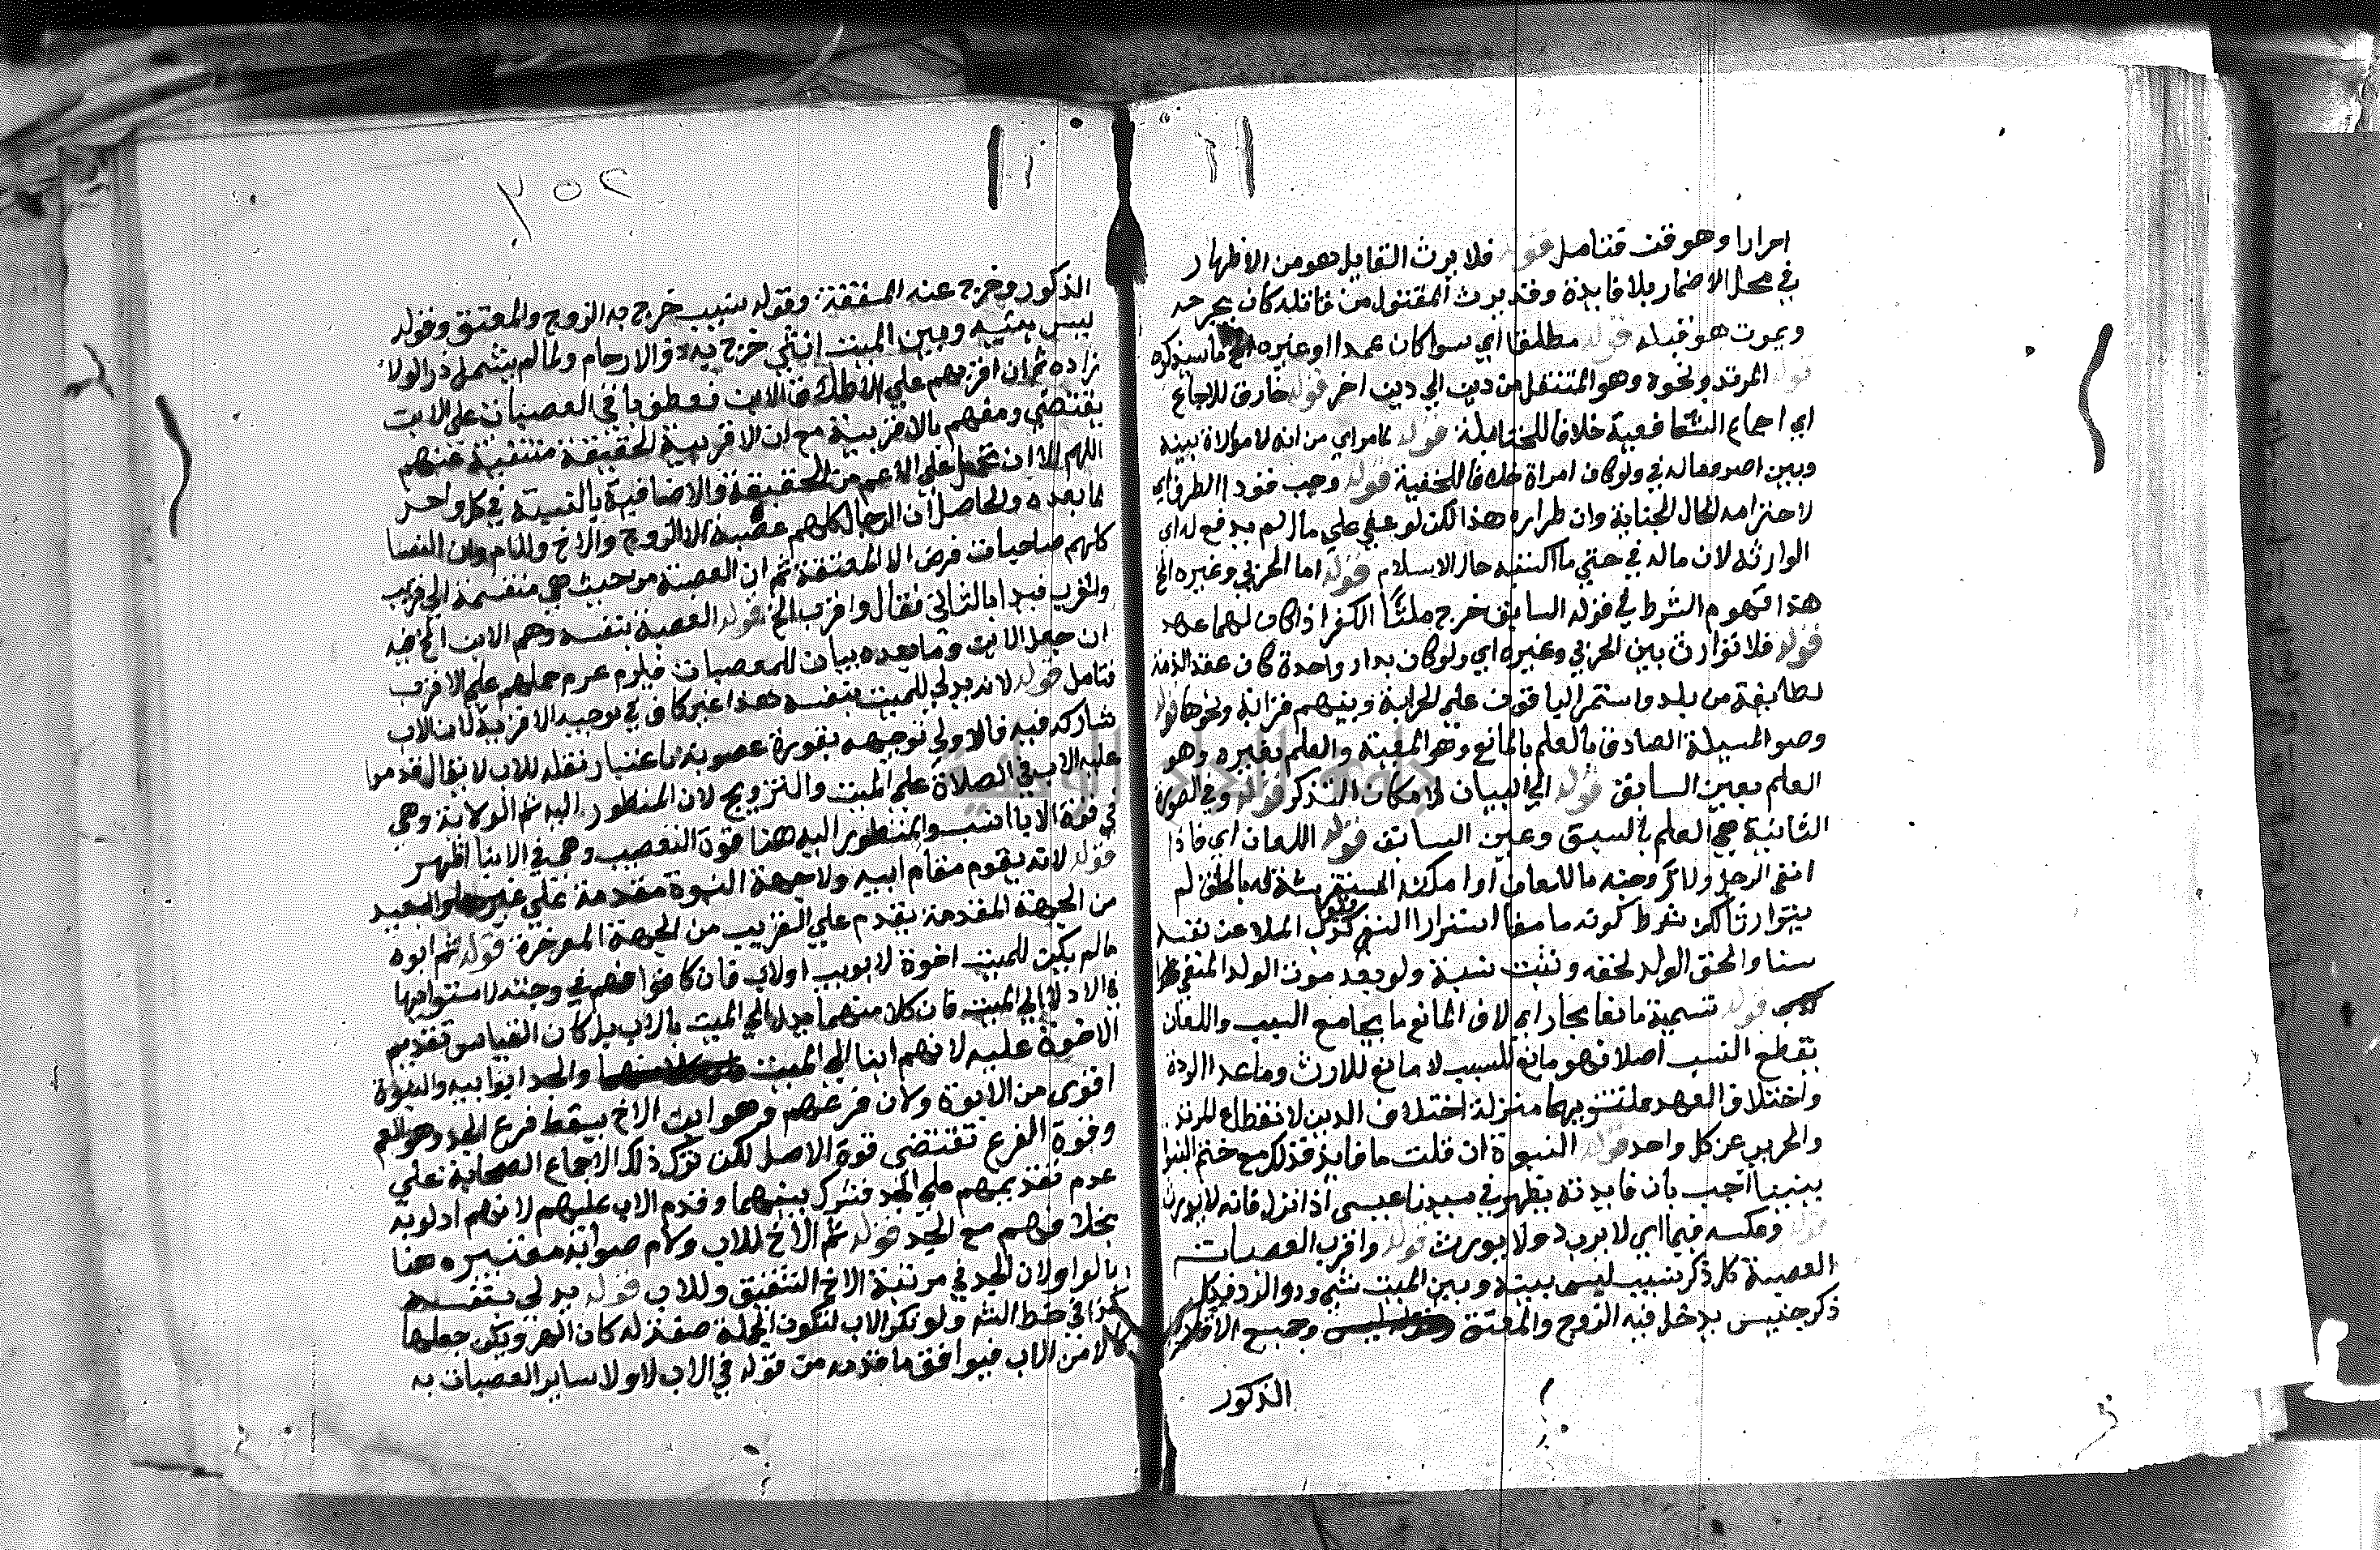 احرارا وهو قن فتامل قوله فلا يرث القاتل هو من الاظهار
في محل الاضمار بلا فايدة وقد يرث المقتول من قاتله كان يجرحه
ويموت هو قبله قوله مطلقا اي سوا كان عمدا او غيره الخ ما سيذكره
قوله المرتد ونحوه وهو المنتقل من دين الي دين اخر قوله خارق للاجماع
اي اجماع الشافعية خلافا للحنابلة قوله لما مر اي من انه لا موالاة بينه
وبين احد وماله في ولو كان امراة خلافا للحنفية قوله وجب قود الطرف اي
لاحترامه لحال الجناية وان طرا رده هذا لكن لو عفي علي مال لم يدفع له اي
الوارثه لان ماله في حتي ما اكتسبه حال الاسلام قوله اما الحربي وغيره الخ
هذا مفهوم الشرط في قوله السابق خرج ملتا الكفر اذا كان لهما عهد
قوله فلا توارث بين الحربي وغيره اي ولو كان بدار واحدة كان عقد الذمة
لطايفة من بلد واستمر الباقون علي الحرابة وبينهم قرابة ونحوها قوله
وصو المسيلة الصادق بالعلم بالمانع وهو المعية والعلم بغيره وهو
العلم بعين السابق قوله الي البيان لامكان التذكر قوله وفي الصورة
الثانية هي العلم بالسبق وعين السابق قوله اللعان اي فاذا
انتفي الرجل ولا لزوجته باللعان لم
يتوارثا لكن شرط كونه مانعا استقرار النفي الملاعن نفسه
سنا والحق الولد لحقه وثبت نسبة ولو بعد موت الولد المنفي
قوله تسمية مانعا مجاز اي لان المانع ما يجامع السبب واللعان
يقطع النسب اصلا فهو مانع للسبب لا مانع للارث وما عدا الردة
واختلاف العهد بمنزلة اختلاف الدين لانقطاع المرتد
والحربي عن كل واحد قوله النبوة ان قلت ما فايدة ذلك مع ختم النبوة
بنبينا اجيب بان فايدته يظهر في سيدنا عيسى اذا نزل فانه لا يورث
قوله وعكسه فيما اي لا يرث ولا يورث قوله واقرب العصبات
العصبة كل ذكر نسيب ليس بينه وبين الميت نثي
ذكر جنس يدخل فيه الزوج والمعتق وجميع الاقارب
الذكور
٢٥٢
الذكور وخرج عنه المعتقة وقوله نسيب خرج به الزوج والمعتق وقوله
ليس بينه وبين الميت انثي خرج به ذو الارحام ولما لم يشمل ذو الولا
زاده ثم ان اقربهم علي الاطلاق الابن فعطف باقي العصبات علي الابن
يقتضي وصفهم بالاقربية مع ان الاقربية الحقيقة منتفية عنهم
اللهم الا ان تحمل علي الاعم من الحقيقة والاضافية بالنسبة في كل واحد
لما بعده والحاصل ان الرجال كلهم عصبة الا الزوج والاخ للام وان النسا
كلهم صاحبات فرض الا المعتقة ثم ان العصبة من حيث هي منقسمة الي قريب
واقرب فبدا بالثاني فقال واقرب الخ قوله العصبة بنفسه وهم الابن الخ فيه
ان جعل الابن وما بعده بيان للعصبات فيلزم عدم حملهم علي الاقرب
فتامل قوله لانه يدلي للميت بنفسه هذا غير كاف في توجيه الاقربية لان الاب
شاركه فيه فالاولي توجيهه بقوة عصوبته باعتبار نقله للاب لا يقال قدموا
عليه الاب في الصلاة علي الميت والتزويج لان المنظور اليه ثم الولاية وهي
في قوة الابا انسب والمنظور اليه هنا قوة التعصيب وهي في الابنا اظهر
قوله لانه يقوم مقام ابيه ولا جهة البنوة مقدمة علي غيرها والبعيد
من الجهة المقدمة يقدم علي القريب من الجهة المؤخرة قوله ثم ابوه
ما لم يكن للميت اخوة لابوين او لاب فان كانوا فهم في رتبته لاستوايهما
في الادلا الي الميت فان كلا منهما يدلي الي الميت بالاب بل كان القياس تقديم
الاخوة عليه لانهم ابنا ابي الميت والجد ابو ابيه والبنوة
اقوي من الابوة ولان فرعهم وهو ابن الاخ يسقط فرع الجد وهو العم
وقوة الفرع تقتضي قوة الاصل لكن ترك ذلك لاجماع الصحابة علي
عدم تقديمهم علي الجد فشرك بينهما وقدم الاب عليهم لانهم ادلو به
بخلافهم مع الجد قوله ثم الاخ للاب ولام صوابه تعبيره هنا
بالواو لان الجد في مرتبة الاخ الشقيق وللاب قوله يدلي بنفسه
كذا في خط الشه ولو نكر الاب لتكون الجملة صفة له كان اظهر ويمكن جعلها
حالا من الاب فيوافق ما قدمه من قوله في الاب لاولا ساير العصبات به